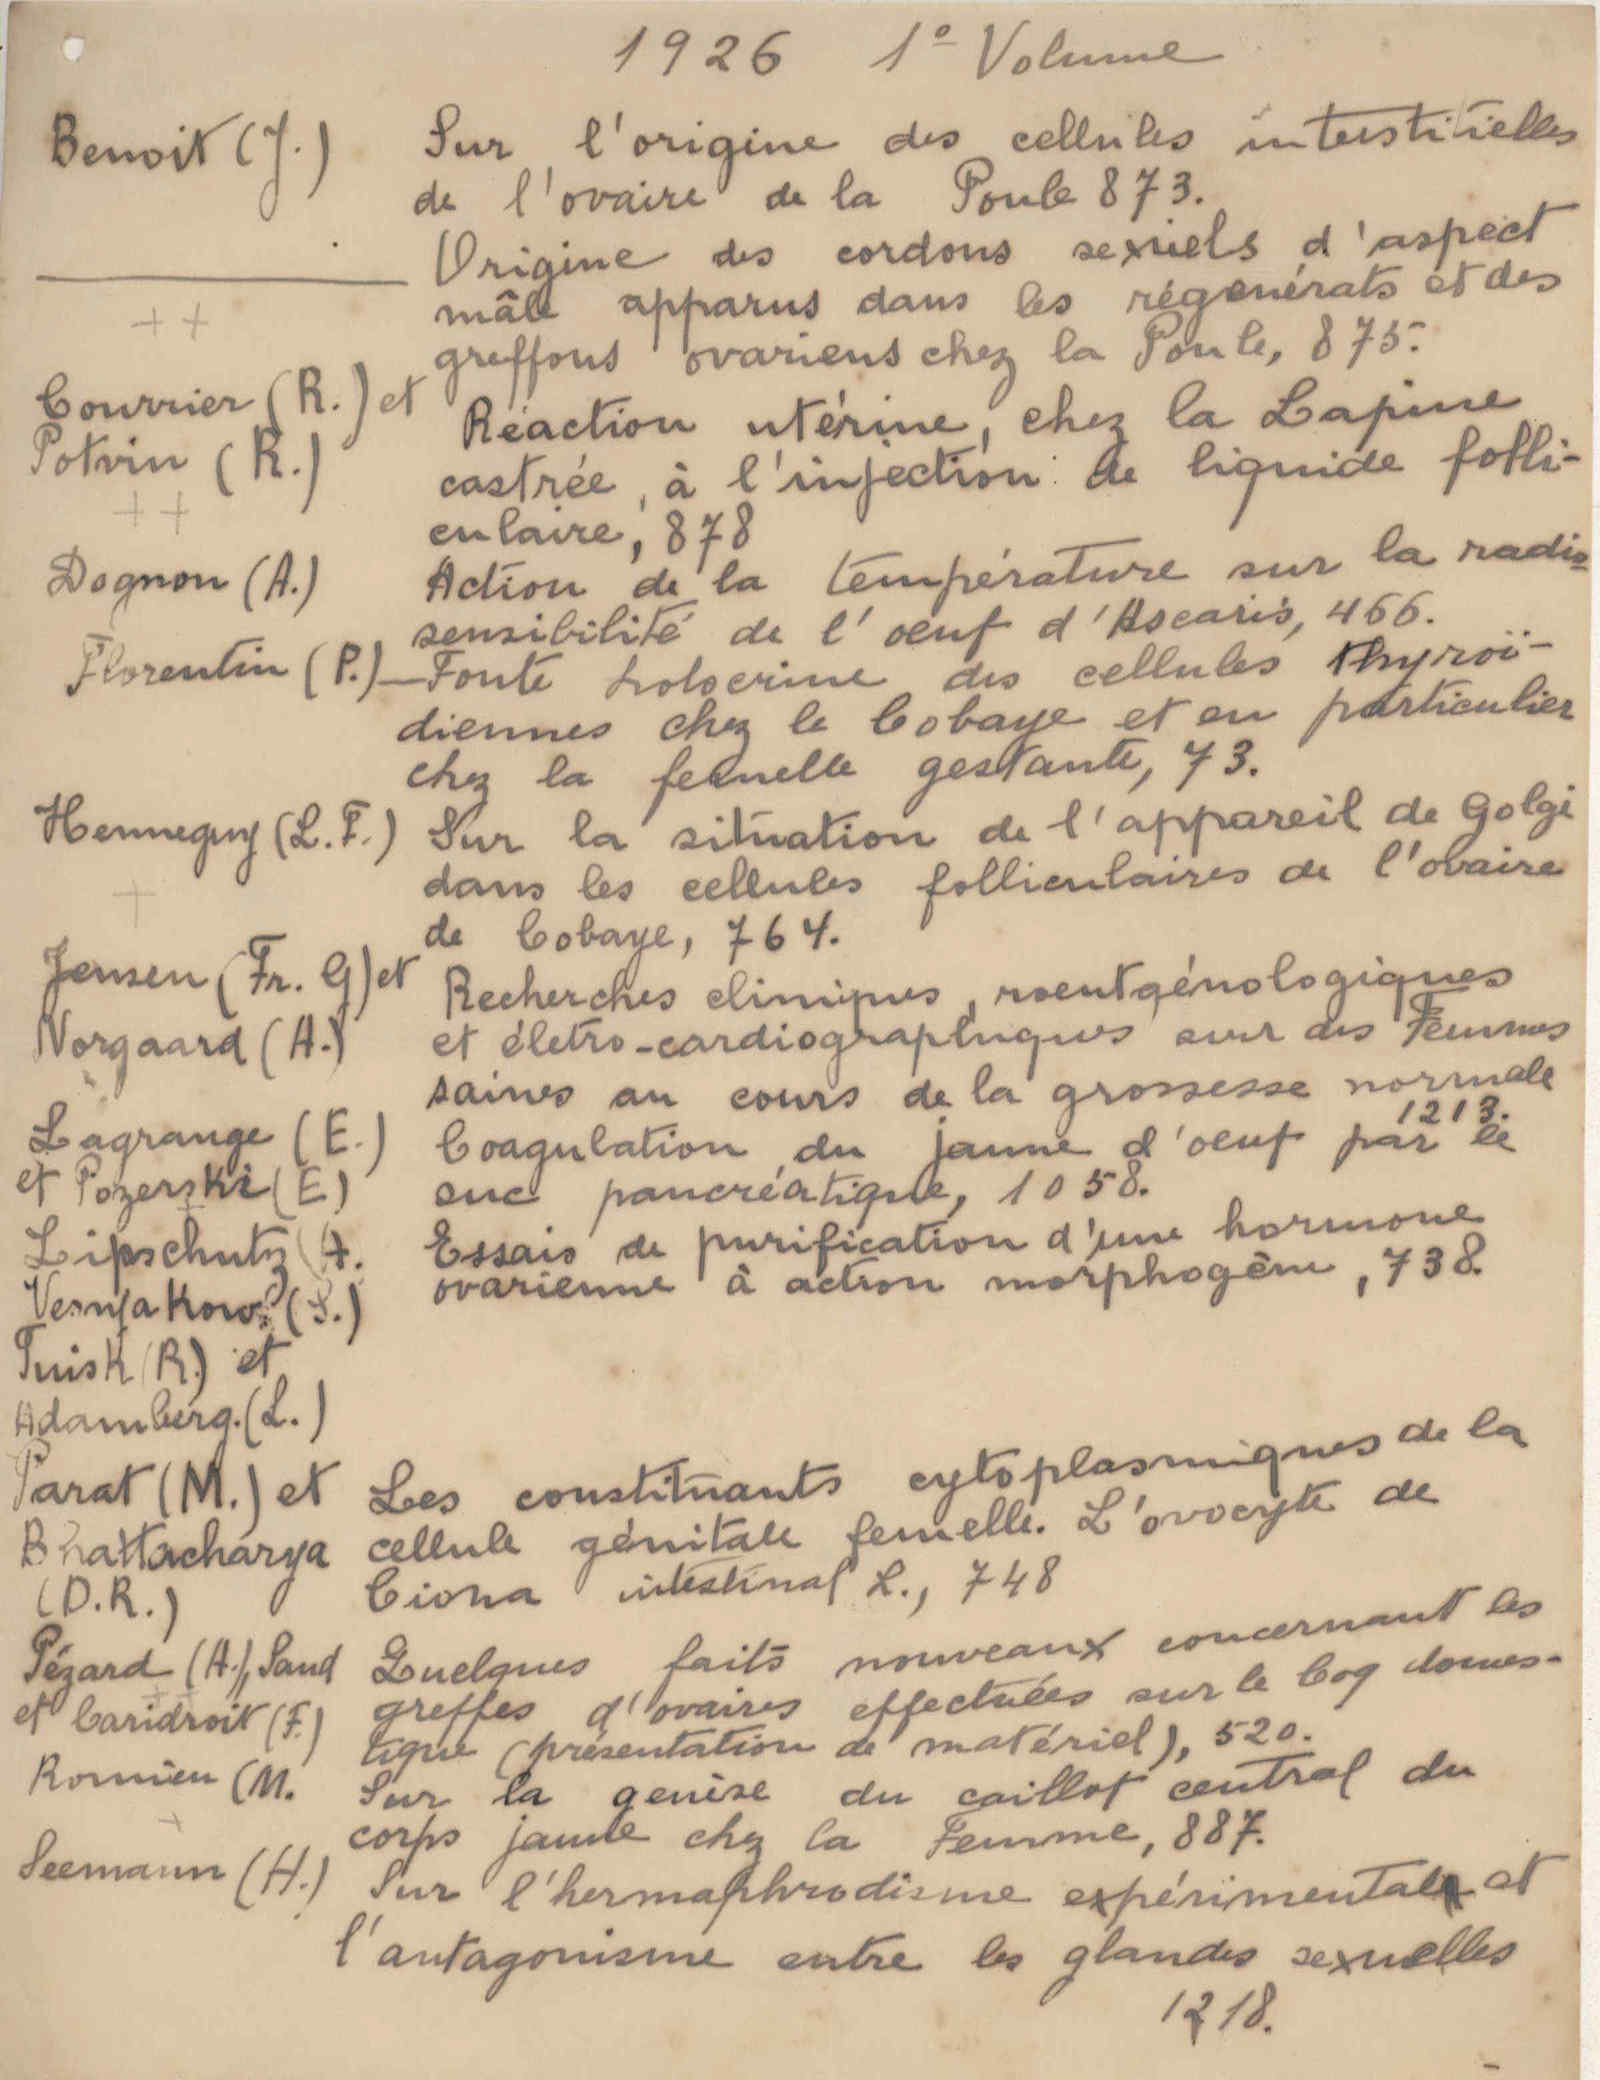 1926 1º Volume
Benoit (J.) Sur l'origine des cellules interstitielles
de l'ovaire de la Poule 873.
Origine des cordons sexuels d'aspect
mâle apparus dans les régénérats et des
++
greffons ovariens chez la Poule, 875.
Courrier (R.) et Réaction utérine, chez la Lapine
Potvin (R.) castrée, à l'injection de liquide folli-
++
culaire, 878
Dognon (A.) Action de la température sur la radio-
sensibilité de l'oeuf d'Ascaris, 466.
Florentin (P.) — Fonte holocrine des cellules thyroï-
diennes chez le Cobaye et en particulier
chez la femelle gestante, 73.
Henneguy (L.F.) Sur la situation de l'appareil de Golgi
dans les cellules folliculaires de l'ovaire
+
de Cobaye, 764.
Jensen (Fr. G) et Recherches cliniques, roentgénologiques
Norgaard (A.) et életro-cardiographiques sur des Femmes
saines au cours de la grossesse normale
1213.
Lagrange (E.) Coagulation du jaune d'oeuf par le
et Pozerski (E) suc pancréatique, 1058.
Lipschutz (A. Essais de purification d'une hormone
Vesnjakow (S.) ovarienne à action morphogène, 738.
Tuisk (R.) et
Adamberg. (L.)
Parat (M.) et Les constituants cytoplasmiques de la
Bhattacharya cellule génitale femelle. L'ovocyte de
(D.R.) Ciona intestinal L., 748
Pézard (A.), Sand Quelques faits nouveaux concernant les
et Caridroit (F.) greffes d'ovaires effectuées sur le Coq domes-
tique (présentation de matériel), 520.
Romieu (M. Sur la genèse du caillot central du
+
corps jaune chez la Femme, 887.
Seemann (H.) Sur l'hermaphrodisme expérimental et
l'antagonisme entre les glandes sexuelles
1218.